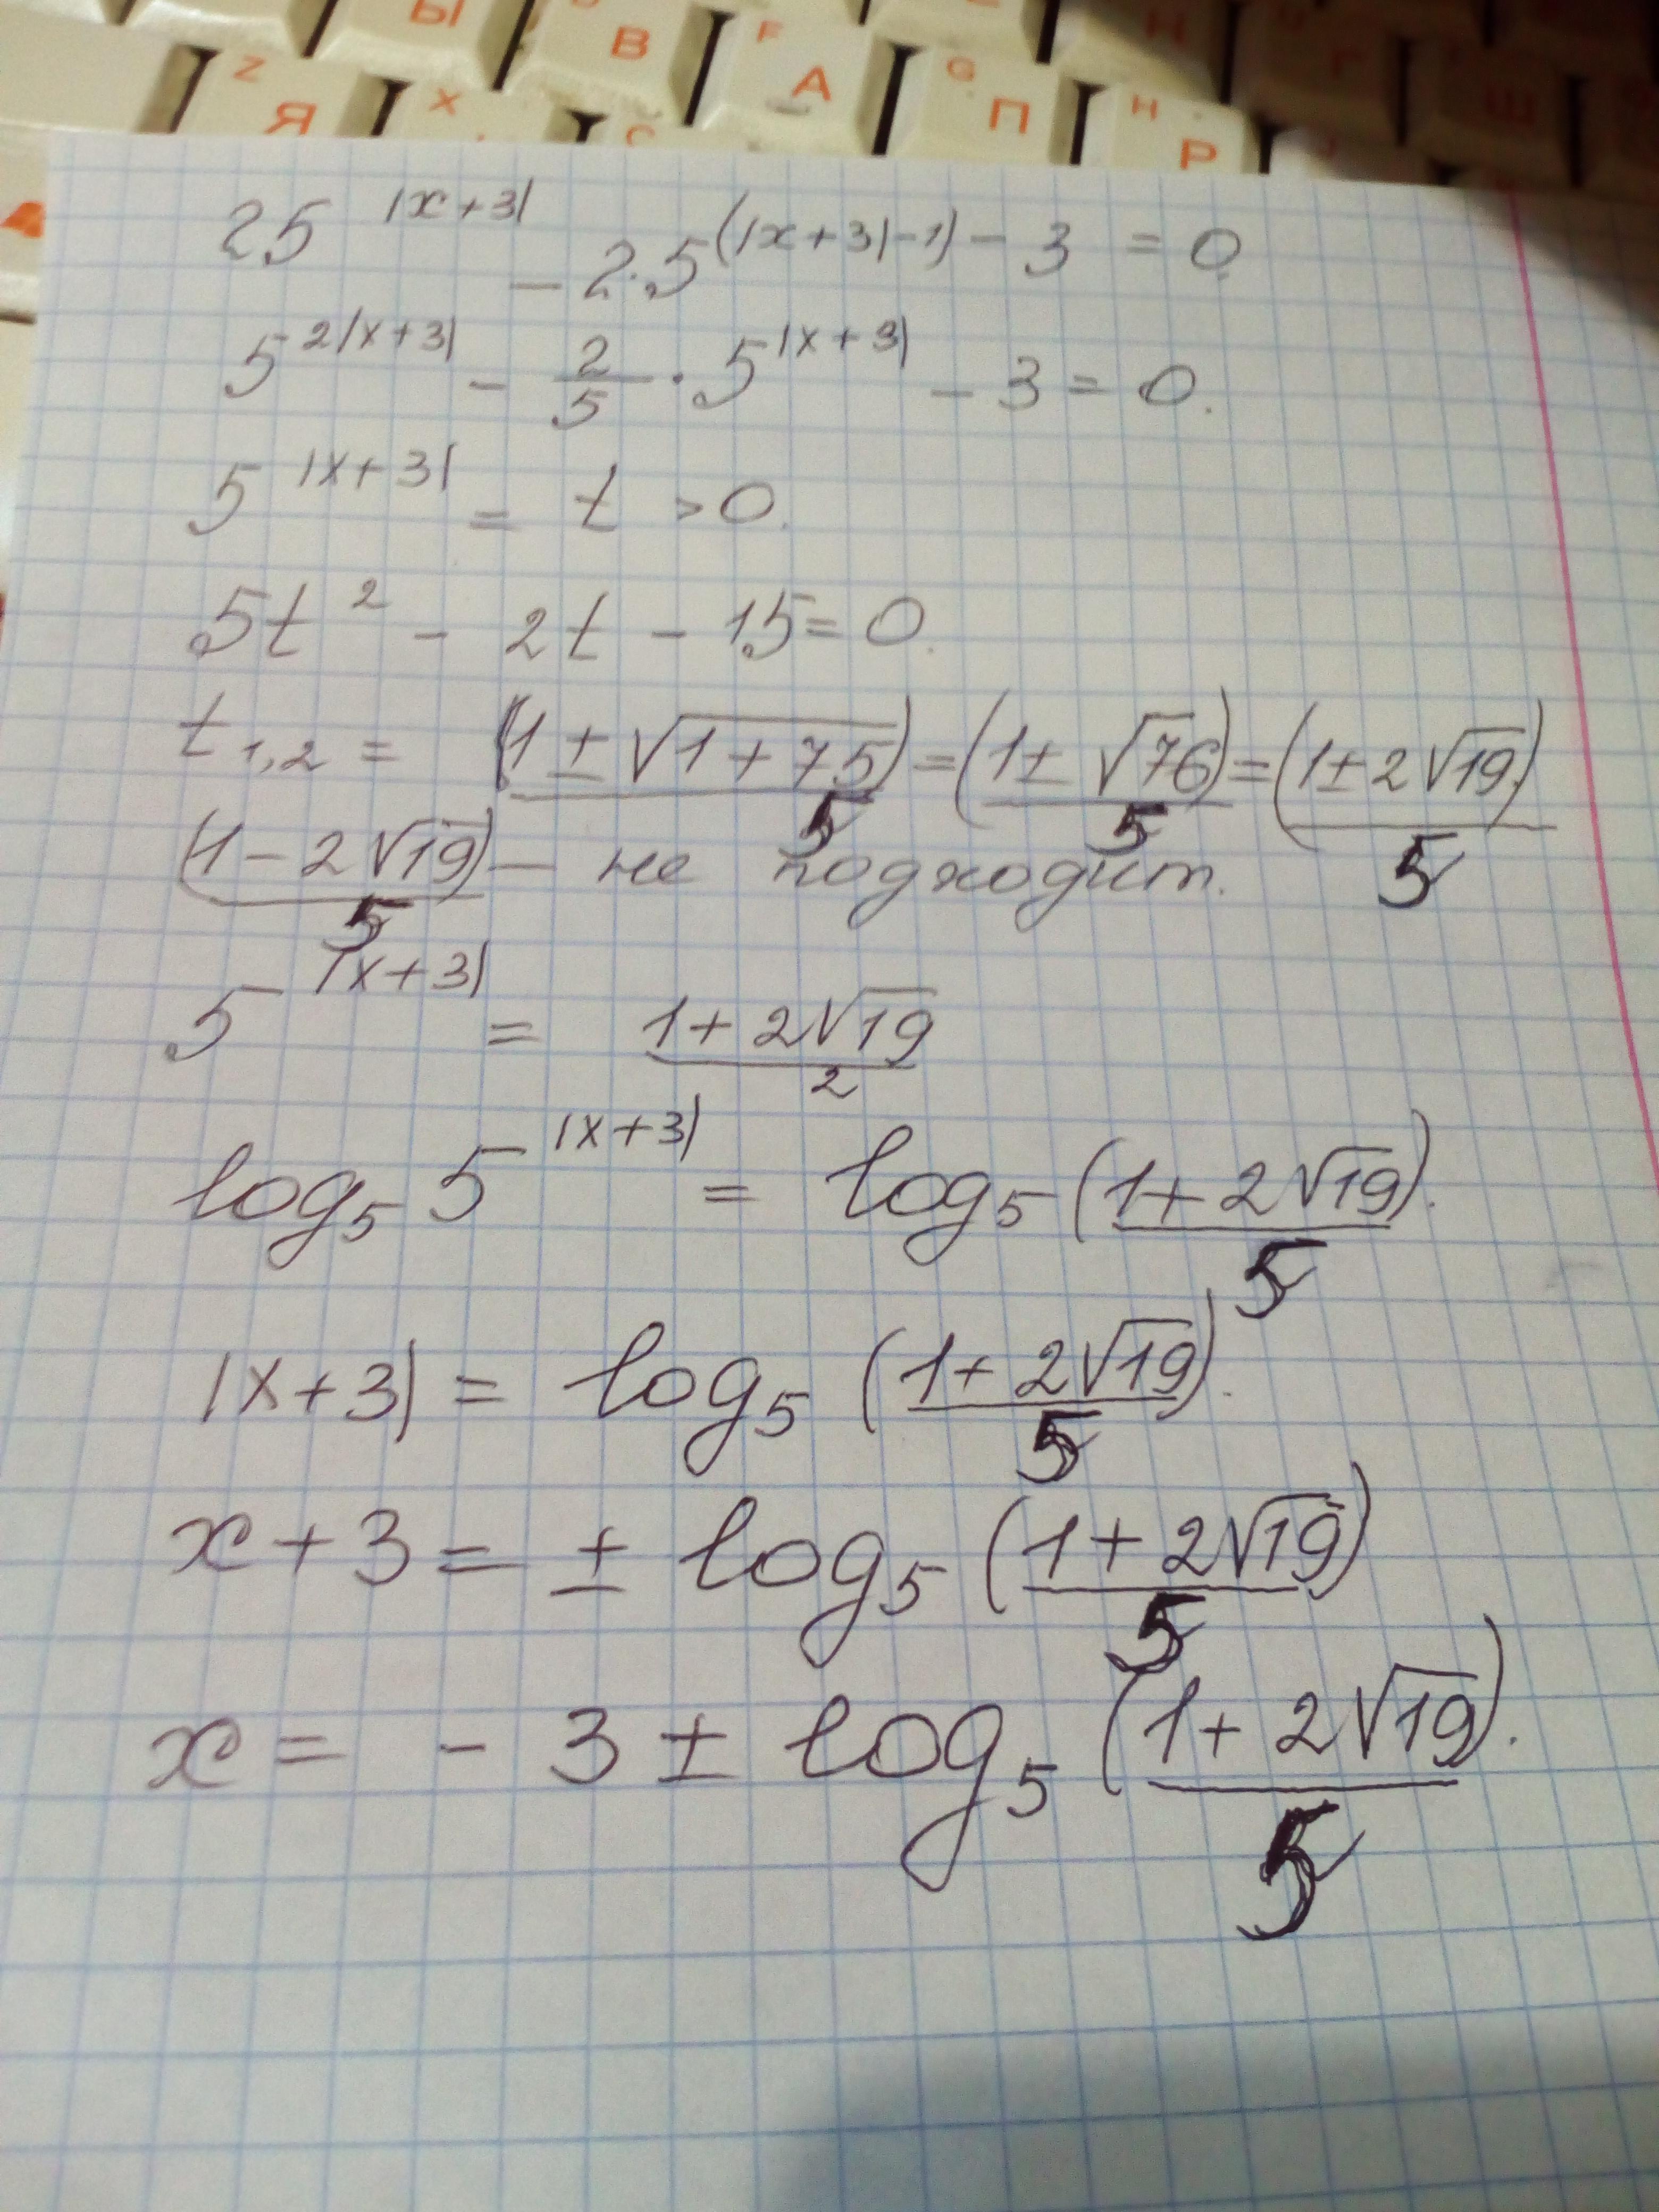 Ы В F А G П H Р
Z Я X C
25^|x+3| - 2·5^(|x+3|-1) - 3 = 0
5^2|x+3| - 2/5 · 5^|x+3| - 3 = 0.
5^|x+3| = t > 0.
5t² - 2t - 15 = 0.
t₁,₂ = (1 ± √1+75)/5 = (1 ± √76)/5 = (1 ± 2√19)/5
(1 - 2√19)/5 — не подходит.
5^|x+3| = 1 + 2√19/2
log₅ 5^|x+3| = log₅ (1 + 2√19)/5.
|x+3| = log₅ (1 + 2√19)/5.
x + 3 = ± log₅ (1 + 2√19)/5
x = - 3 ± log₅ (1 + 2√19)/5.